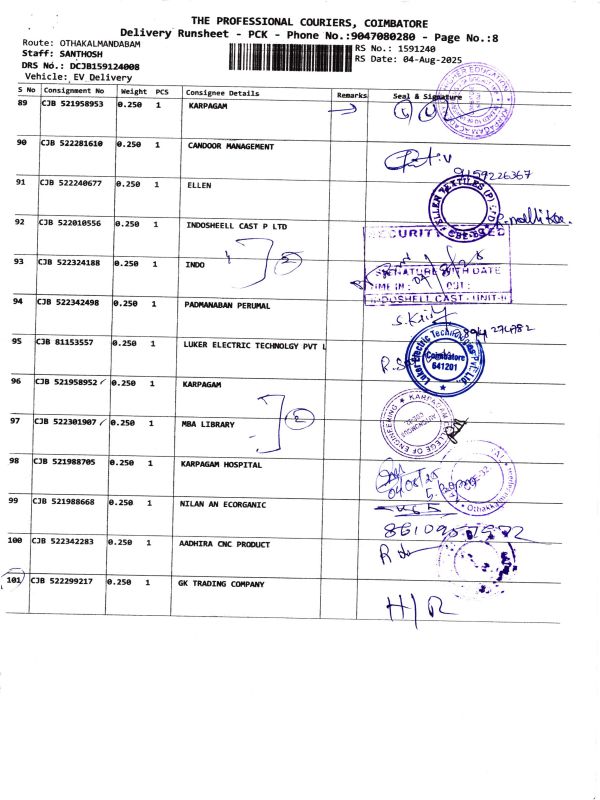 THE PROFESSIONAL COURIERS, COIMBATORE
Delivery Runsheet - PCK - Phone No.:9047080280 - Page No.:8
Route: OTHAKALMANDABAM
Staff: SANTHOSH
DRS No.: DCJB159124008
Vehicle: EV Delivery
RS No.: 1591240
RS Date: 04-Aug-2025
S No Consignment No Weight PCS Consignee Details Remarks Seal & Signature
89 CJB 521958953 0.250 1 KARPAGAM
90 CJB 522281610 0.250 1 CANDOOR MANAGEMENT
9159226367
91 CJB 522240677 0.250 1 ELLEN
ELLEN TEXTILES (P) LTD
92 CJB 522010556 0.250 1 INDOSHEELL CAST P LTD
SECURITY
93 CJB 522324188 0.250 1 INDO
SIGNATURE WITH DATE
TIME IN: OUT:
INDOSHELL CAST - UNIT-II
94 CJB 522342498 0.250 1 PADMANABAN PERUMAL
95 CJB 81153557 0.250 1 LUKER ELECTRIC TECHNOLGY PVT L
Luker Electric Technologies Pvt Ltd
Coimbatore
641201
96 CJB 521958952 0.250 1 KARPAGAM
97 CJB 522301907 0.250 1 MBA LIBRARY
2
KARPAGAM COLLEGE OF ENGINEERING
98 CJB 521988705 0.250 1 KARPAGAM HOSPITAL
04/08/25
99 CJB 521988668 0.250 1 NILAN AN ECORGANIC
100 CJB 522342283 0.250 1 AADHIRA CNC PRODUCT
101 CJB 522299217 0.250 1 GK TRADING COMPANY
H/R